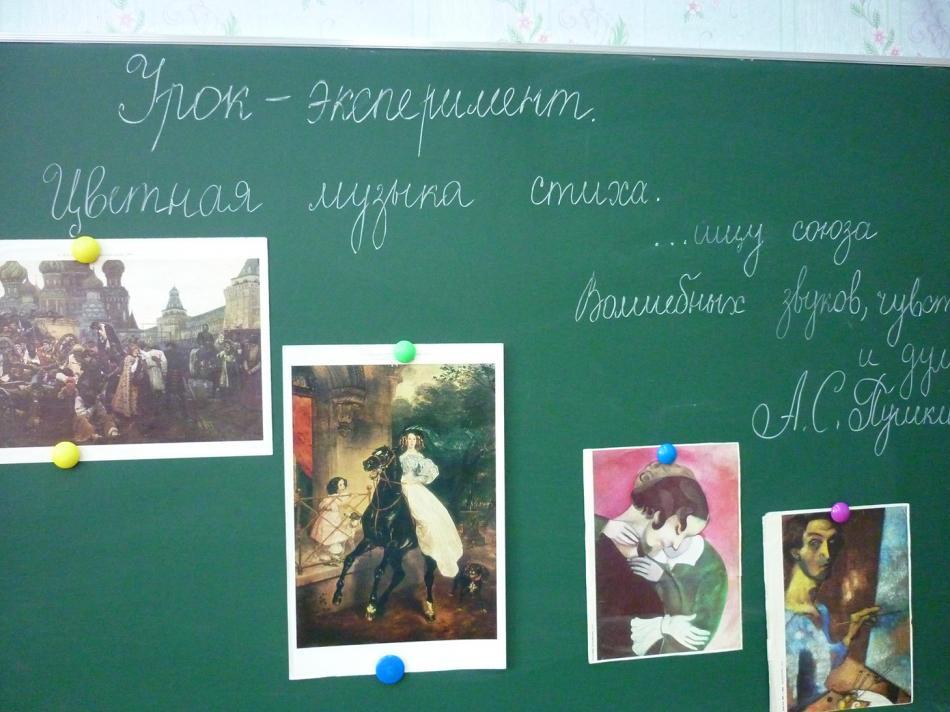 Урок - эксперимент.
Цветная музыка стиха.
...ищу союза
Волшебных звуков, чувст
и дум
А.С. Пушки